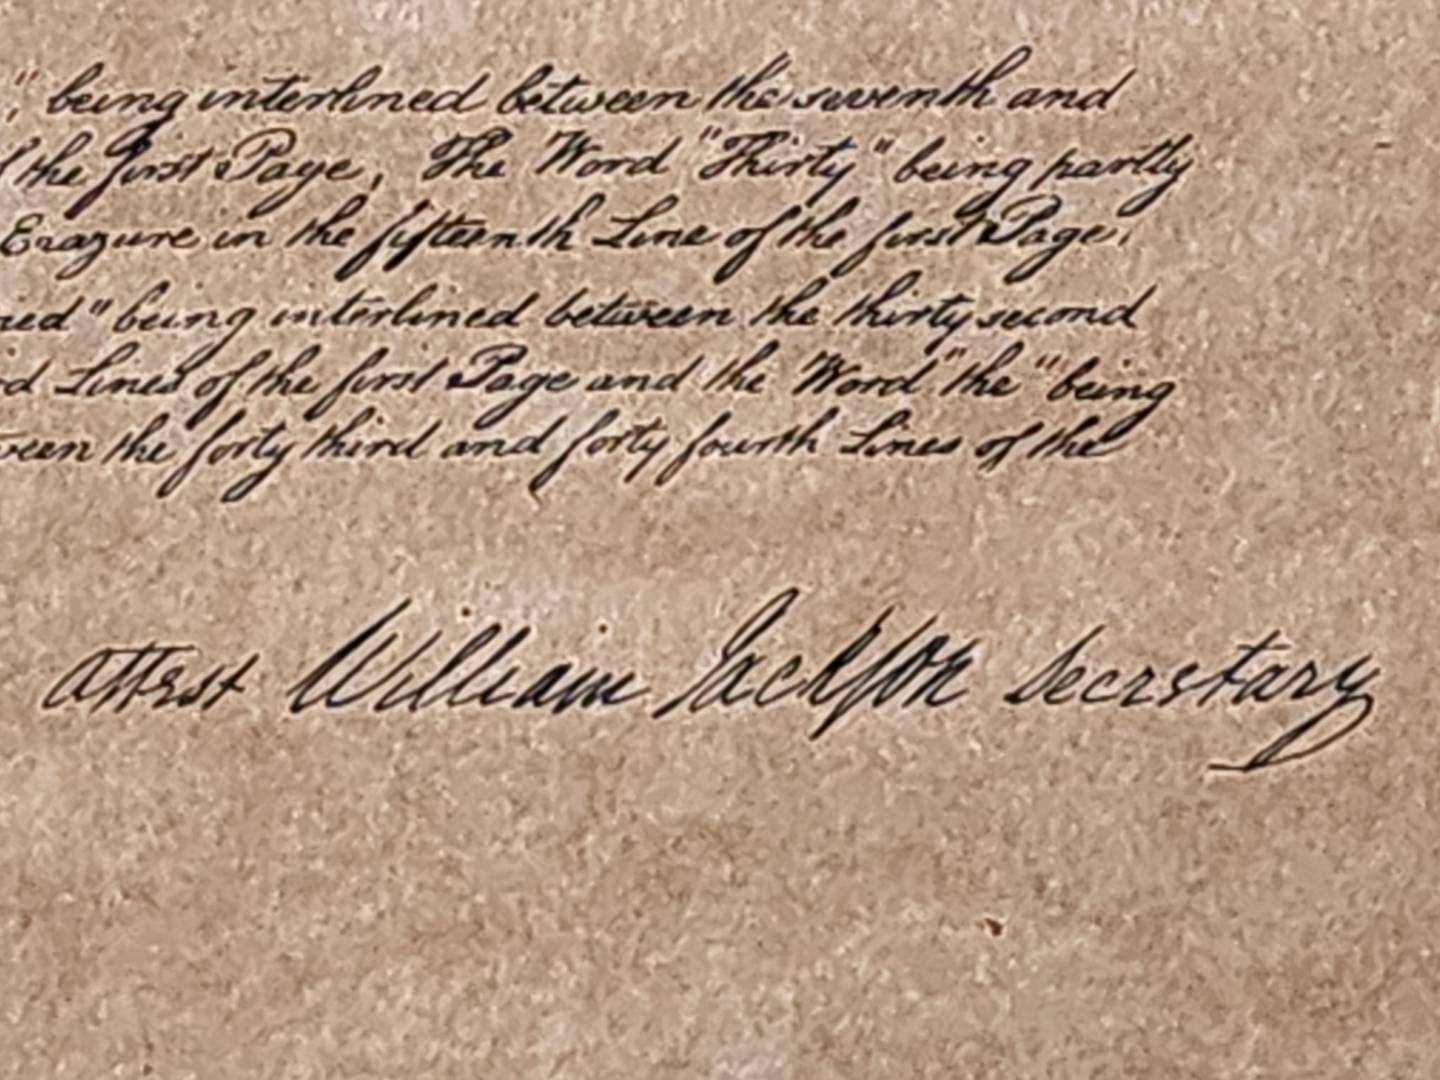 ," being interlined between the seventh and
of the first Page, The Word "Thirty" being partly
Erazure in the fifteenth Line of the first Page,
ried" being interlined between the thirty second
rd Lines of the first Page and the Word "the" being
ween the forty third and forty fourth Lines of the
attest William Jackson Secretary